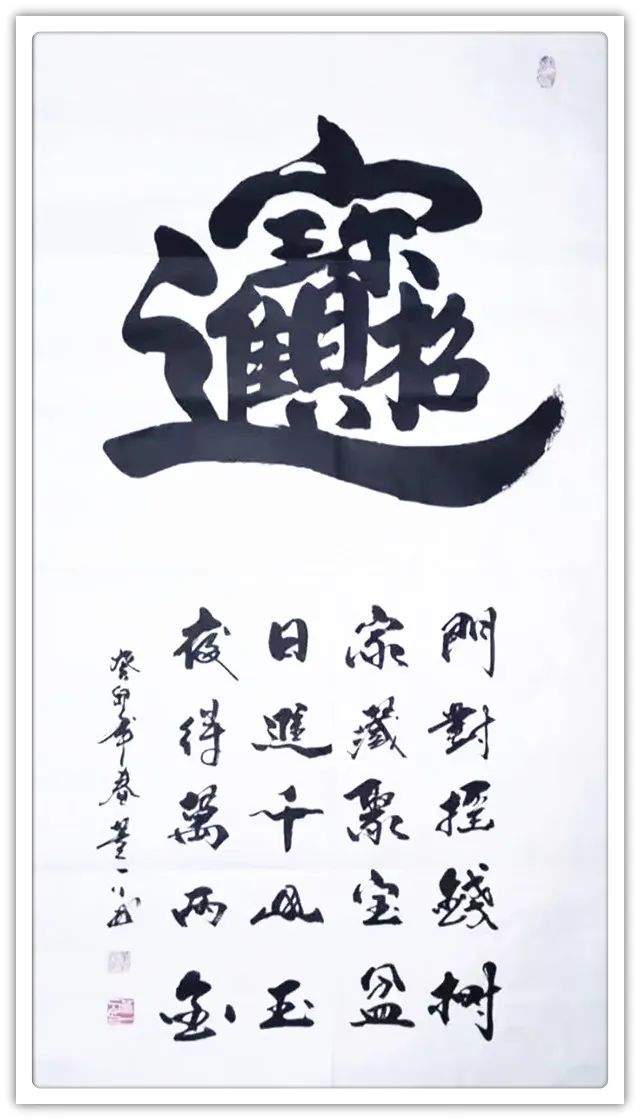 招財進寶
門對搖錢樹
家藏聚宝盆
日進千山玉
夜得萬两金
癸卯年春董一